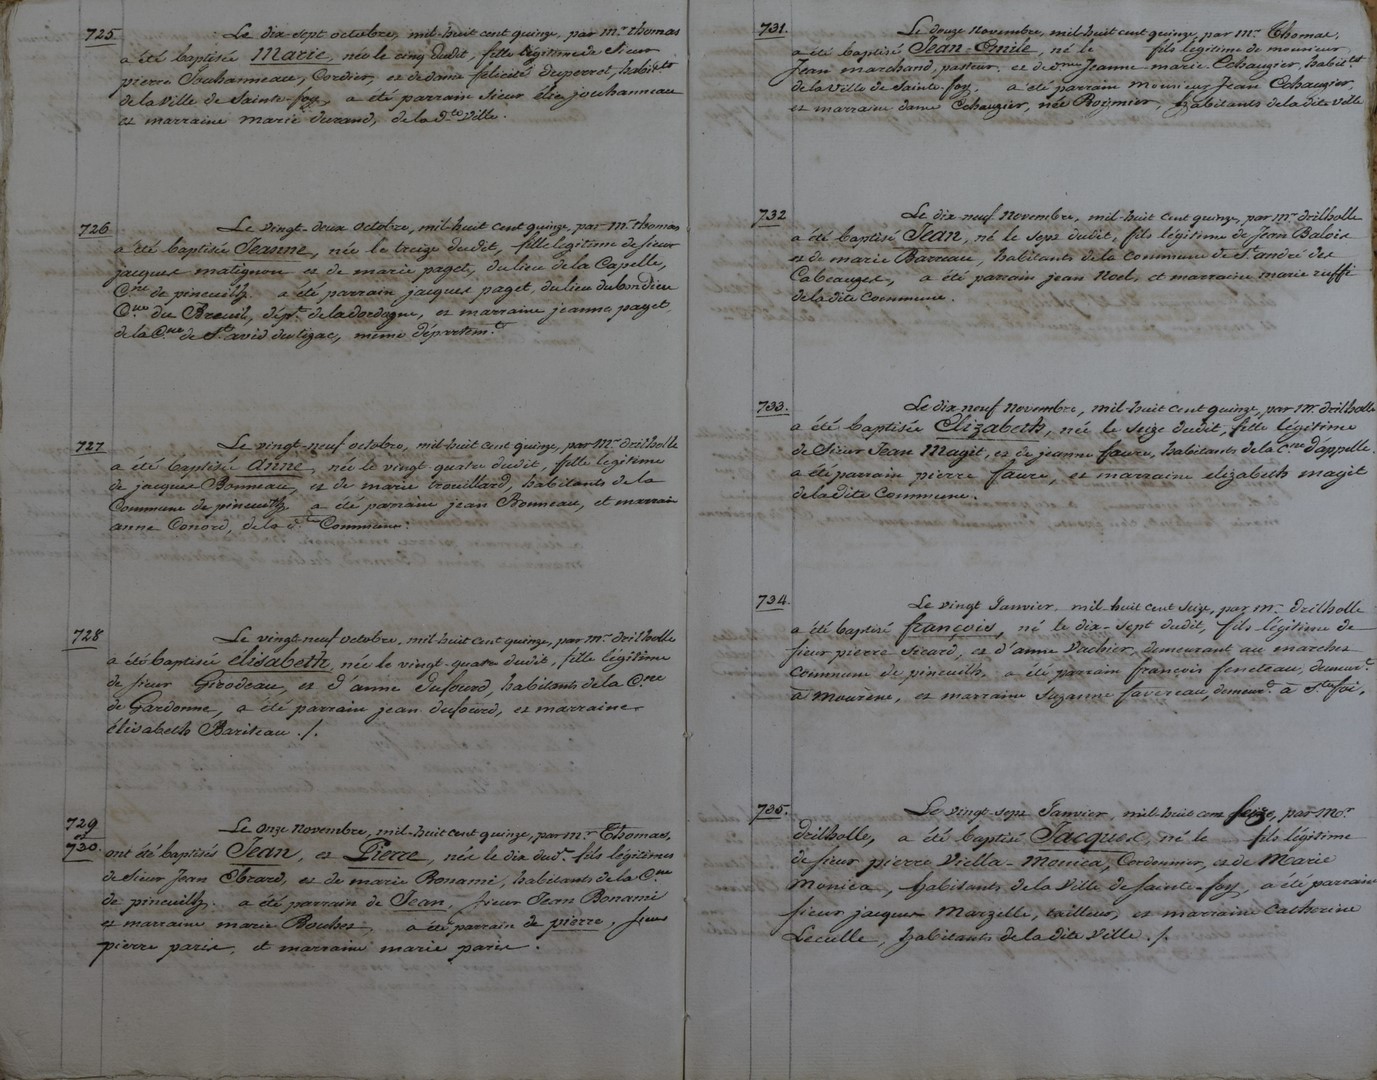 725
Le dix-sept octobre, mil-huit cent quinze, par mr thomas
a été baptisée Marie, née le cinq dudit, fille légitime de Sieur
pierre Jouhanneau, Cordier, et de dame félicité duperrot, habitts
de la ville de Sainte-foy, a été parrain sieur élie jouhanneau
et marraine marie durand, de la dte ville.
726
Le vingt-deux octobre, mil-huit cent quinze, par mr thomas
a été baptisée Jeanne, née le treize dudit, fille légitime de sieur
jacques matignon et de marie paget, du lieu de la Capelle,
Cne de pineuilh. a été parrain jacques paget, du lieu du
Cne du Breuil, dépt. de la dordogne, et marraine jeanne paget
de la Cne de St avid du tizac, même départemt.
727
Le vingt-neuf octobre, mil-huit cent quinze, par Mr drilholle
a été baptisée anne, née le vingt-quatre dudit, fille légitime
de jacques Bonneau, et de marie trouillard, habitants de la
Commune de pineuilh, a été parrain jean Bonneau, et marraine
anne Conord, de la dte Commune.
728
Le vingt-neuf octobre, mil-huit cent quinze, par mr drilholle
a été baptisée élisabeth, née le vingt-quatre dudit, fille légitime
de sieur Girodeau, et d'anne dufourd, habitants de la Cne
de Gardonne, a été parrain jean dufourd, et marraine
élisabeth Bariteau ./.
729
et
730.
Le onze novembre, mil-huit cent quinze, par mr Thomas,
ont été baptisés Jean, et Pierre, nés le dix dudt. fils légitimes
de Sieur Jean Obrard, et de marie Bonami, habitants de la Cne
de pineuilh. a été parrain de Jean, sieur Jean Bonami
et marraine marie Bouhet, a été parrain de pierre, sieur
pierre paris, et marraine marie paris.
731.
Le douze novembre, mil-huit cent quinze, par mr Thomas,
a été baptisé Jean-Emile, né le fils légitime de monsieur
Jean marchand, pasteur, et de dme Jeanne marie Echaugier, habittst
de la ville de Sainte-foy. a été parrain monsieur Jean Echaugier,
et marraine dame Echaugier, née Roymier, habitants de la dite ville
732
Le dix-neuf novembre, mil-huit cent quinze, par mr drilholle
a été baptisé Jean, né le sept dudit, fils légitime de Jean Balois
et de marie Barreau, habitants de la Commune de St. andré des
Cabeauges, a été parrain jean Noel, et marraine marie ruffi
de la dite Commune.
733.
Le dix-neuf novembre, mil-huit cent quinze, par mr. drilholle
a été baptisée Elizabeth, née le seize dudit, fille légitime
de Sieur Jean Magit, et de jeanne faure, habitants de la Cne d'appelle.
a été parrain pierre faure, et marraine elizabeth magit
de la dite Commune.
734.
Le vingt Janvier, mil-huit cent seize, par mr drilholle
a été baptisé françois, né le dix-sept dudit, fils légitime de
sieur pierre Sicard, et d'anne Vacher, demeurant au marches
Commune de pineuilh, a été parrain françois feneleau, demeurt.
à Mourens, et marraine Suzanne favereau, demeurt. à Ste foi.
735.
Le vingt-sept Janvier, mil-huit cent seize, par Mr
drilholle, a été baptisé Jacques, né le fils légitime
de sieur pierre Viella-Monica, Cordonnier, et de Marie
Monica, habitants de la Ville de Sainte-foy, a été parrain
sieur jacques Marzelle, tailleur, et marraine Catherine
Leculle, habitants de la dite Ville ./.